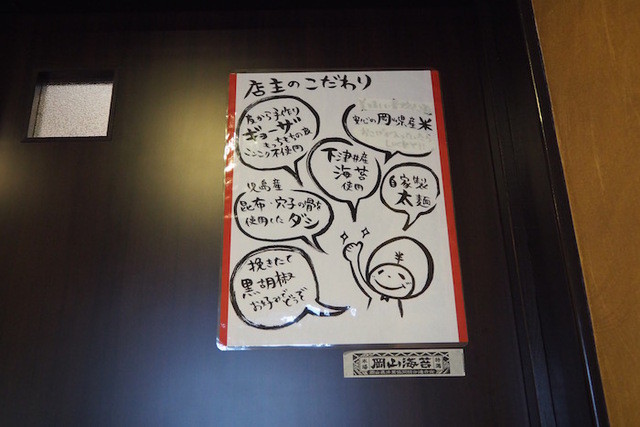 店主のこだわり
皮から手作り
ギョーザ
もっちもちの皮
ニンニク不使用
安心の岡山県産米
下津井産
海苔
使用
自家製
太麺
児島産
昆布・穴子の骨を
使用した ダシ
挽きたて
黒胡椒
お好みでどうぞ
半
岡山海苔